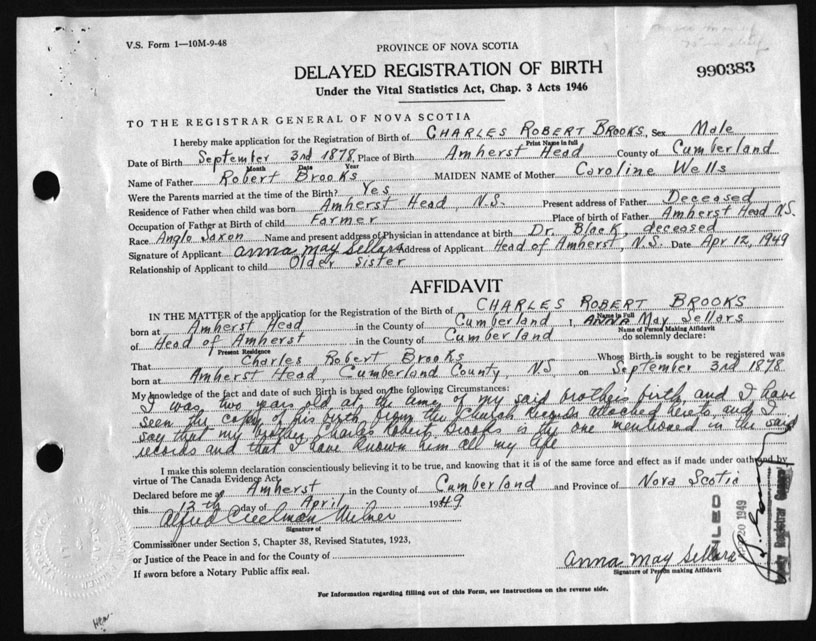 V.S. Form 1—10M-9-48
PROVINCE OF NOVA SCOTIA
DELAYED REGISTRATION OF BIRTH
990383
Under the Vital Statistics Act, Chap. 3 Acts 1946
TO THE REGISTRAR GENERAL OF NOVA SCOTIA
I hereby make application for the Registration of Birth of CHARLES ROBERT BROOKS, Sex Male
Print Name in full
Date of Birth September 3rd 1878, Place of Birth Amherst Head County of Cumberland
Month Date Year
Name of Father Robert Brooks MAIDEN NAME of Mother Caroline Wells
Were the Parents married at time of the Birth? Yes
Residence of Father when child was born Amherst Head, N.S. Present address of Father Deceased
Occupation of Father at Birth of child Farmer Place of birth of Father Amherst Head N.S.
Race Anglo Saxon Name and present address of Physician in attendance at birth Dr. Black, deceased
Signature of Applicant Anna May Sellars Address of Applicant Head of Amherst, N.S. Date Apr 12, 1949
Relationship of Applicant to child Older Sister
AFFIDAVIT
IN THE MATTER of the application of Registration of the Birth of CHARLES ROBERT BROOKS
Name in Full
born at Amherst Head in the County of Cumberland I, ANNA May Sellars
Name of Person Making Affidavit
of Head of Amherst in the County of Cumberland do solemnly declare:
Present Residence
That Charles Robert Brooks Whose Birth is sought to be registered was
born at Amherst Head, Cumberland County, N.S. on September 3rd 1878
My knowledge of the fact and date of such Birth is based on the following Circumstances:
I was two years old at the time of my said brothers birth, and I have
seen the copy of his birth from the Church Records attached hereto, and I
say that my brother Charles Robert Brooks is the one mentioned in the said
records and that I have known him all my life
I make this solemn declaration conscientiously believing it to be true, and knowing that it is of the same force and effect as if made under oath and by
virtue of The Canada Evidence Act.
Declared before me at Amherst in the County of Cumberland and Province of Nova Scotia
this 12th day of April 1949
Alfred Creelman Milner
Signature of
Commissioner under Section 5, Chapter 38, Revised Statutes, 1923,
or Justice of the Peace in and for the County of
If sworn before a Notary Public affix seal.
FILED
20 1949
Deputy Registrar General
Anna May Sellars
Signature of Person making Affidavit
For Information regarding filling out of this Form, see Instructions on the reverse side.